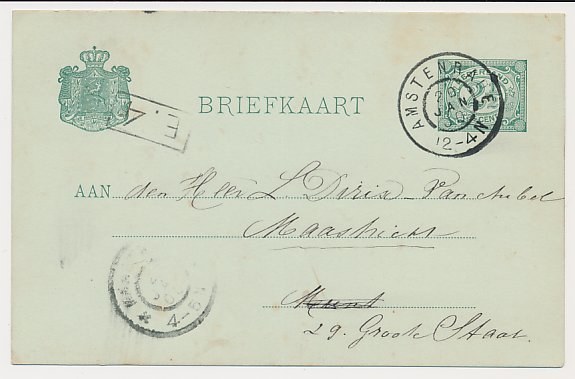 BRIEFKAART
AMSTENRADE N
JAN
12-4
F.N
AAN den Heer L Dirix-Van Aubel
Maastricht
4-5N
Munt
29. Groote Staat